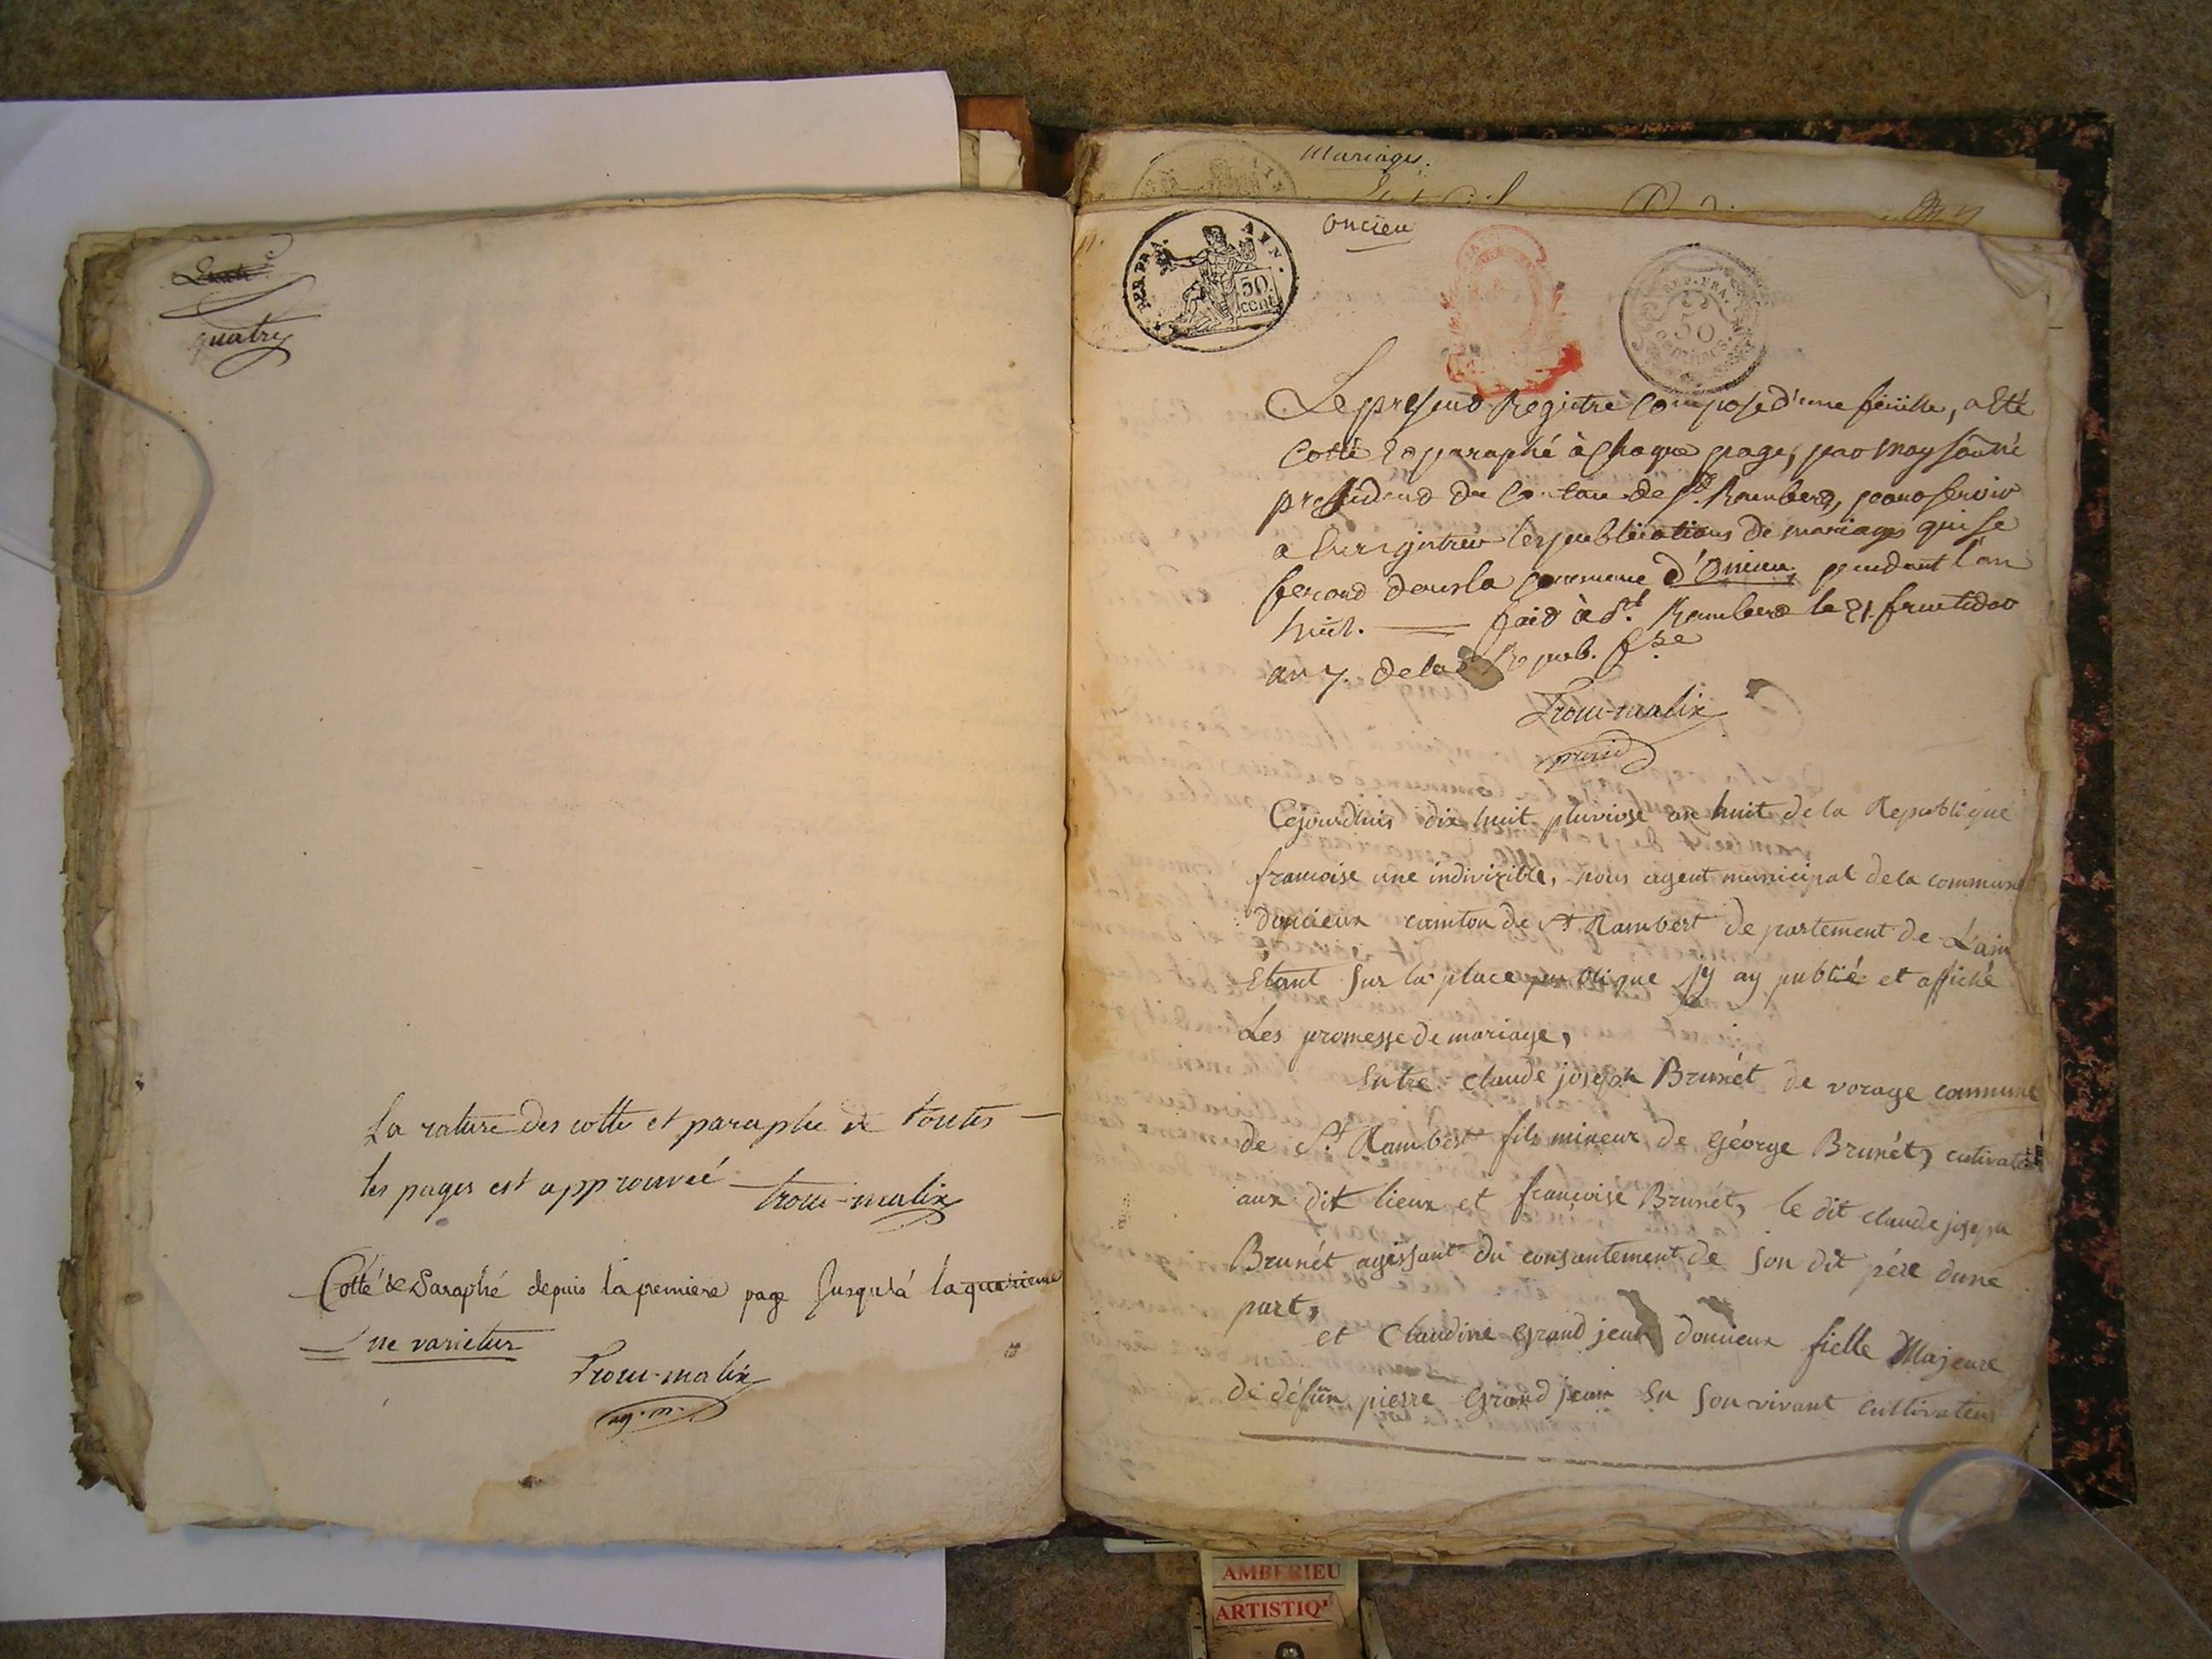 quatre
La rature des cottes et paraphe de toutes
les pages est approuvée
trocu-malix
Cotté & Paraphé depuis la premiere page Jusqu'à la quatrieme
ne varietur
Trocu-malix
ag. m.
Mariages.
Oncieu
REP. FRA. AIN.
50
cent
REP. FRA.
50
centimes
Le present Registre composé d'une feüille, a Eté
Cotté Et paraphé à chaque page, par moy soûné
president du Canton de St. Rambert, pour servir
a Enregistrer les publications de mariages qui se
feront dans la commune d'Oncieu, pendant l'an
huit. fait à St. Rambert le 21. fructidor
an 7. de la Repub. fse
Trocu-malix
presid
Cejourdhuis dix huit pluviose an huit de la Republique
francoise une indivizible, nous agent municipal de la commune
doncieux camton de St Rambert de partement de L'ain
Etant sur la place publique jy ay publié et affiché
Les promesse de mariage,
Entre claude joseph Brunét de vorage commune
de St Rambert fils mineur de Géorge Brunét, cutivateur
aux dit lieux et françoise Brunét, le dit claude joseph
Brunét agissant du consantement de son dit pére dune
part,
et Claudine Grand jean doncieux fielle Majeure
de défun pierre Grand jean En son vivant cultivateur
AMBERIEU
ARTISTIQ